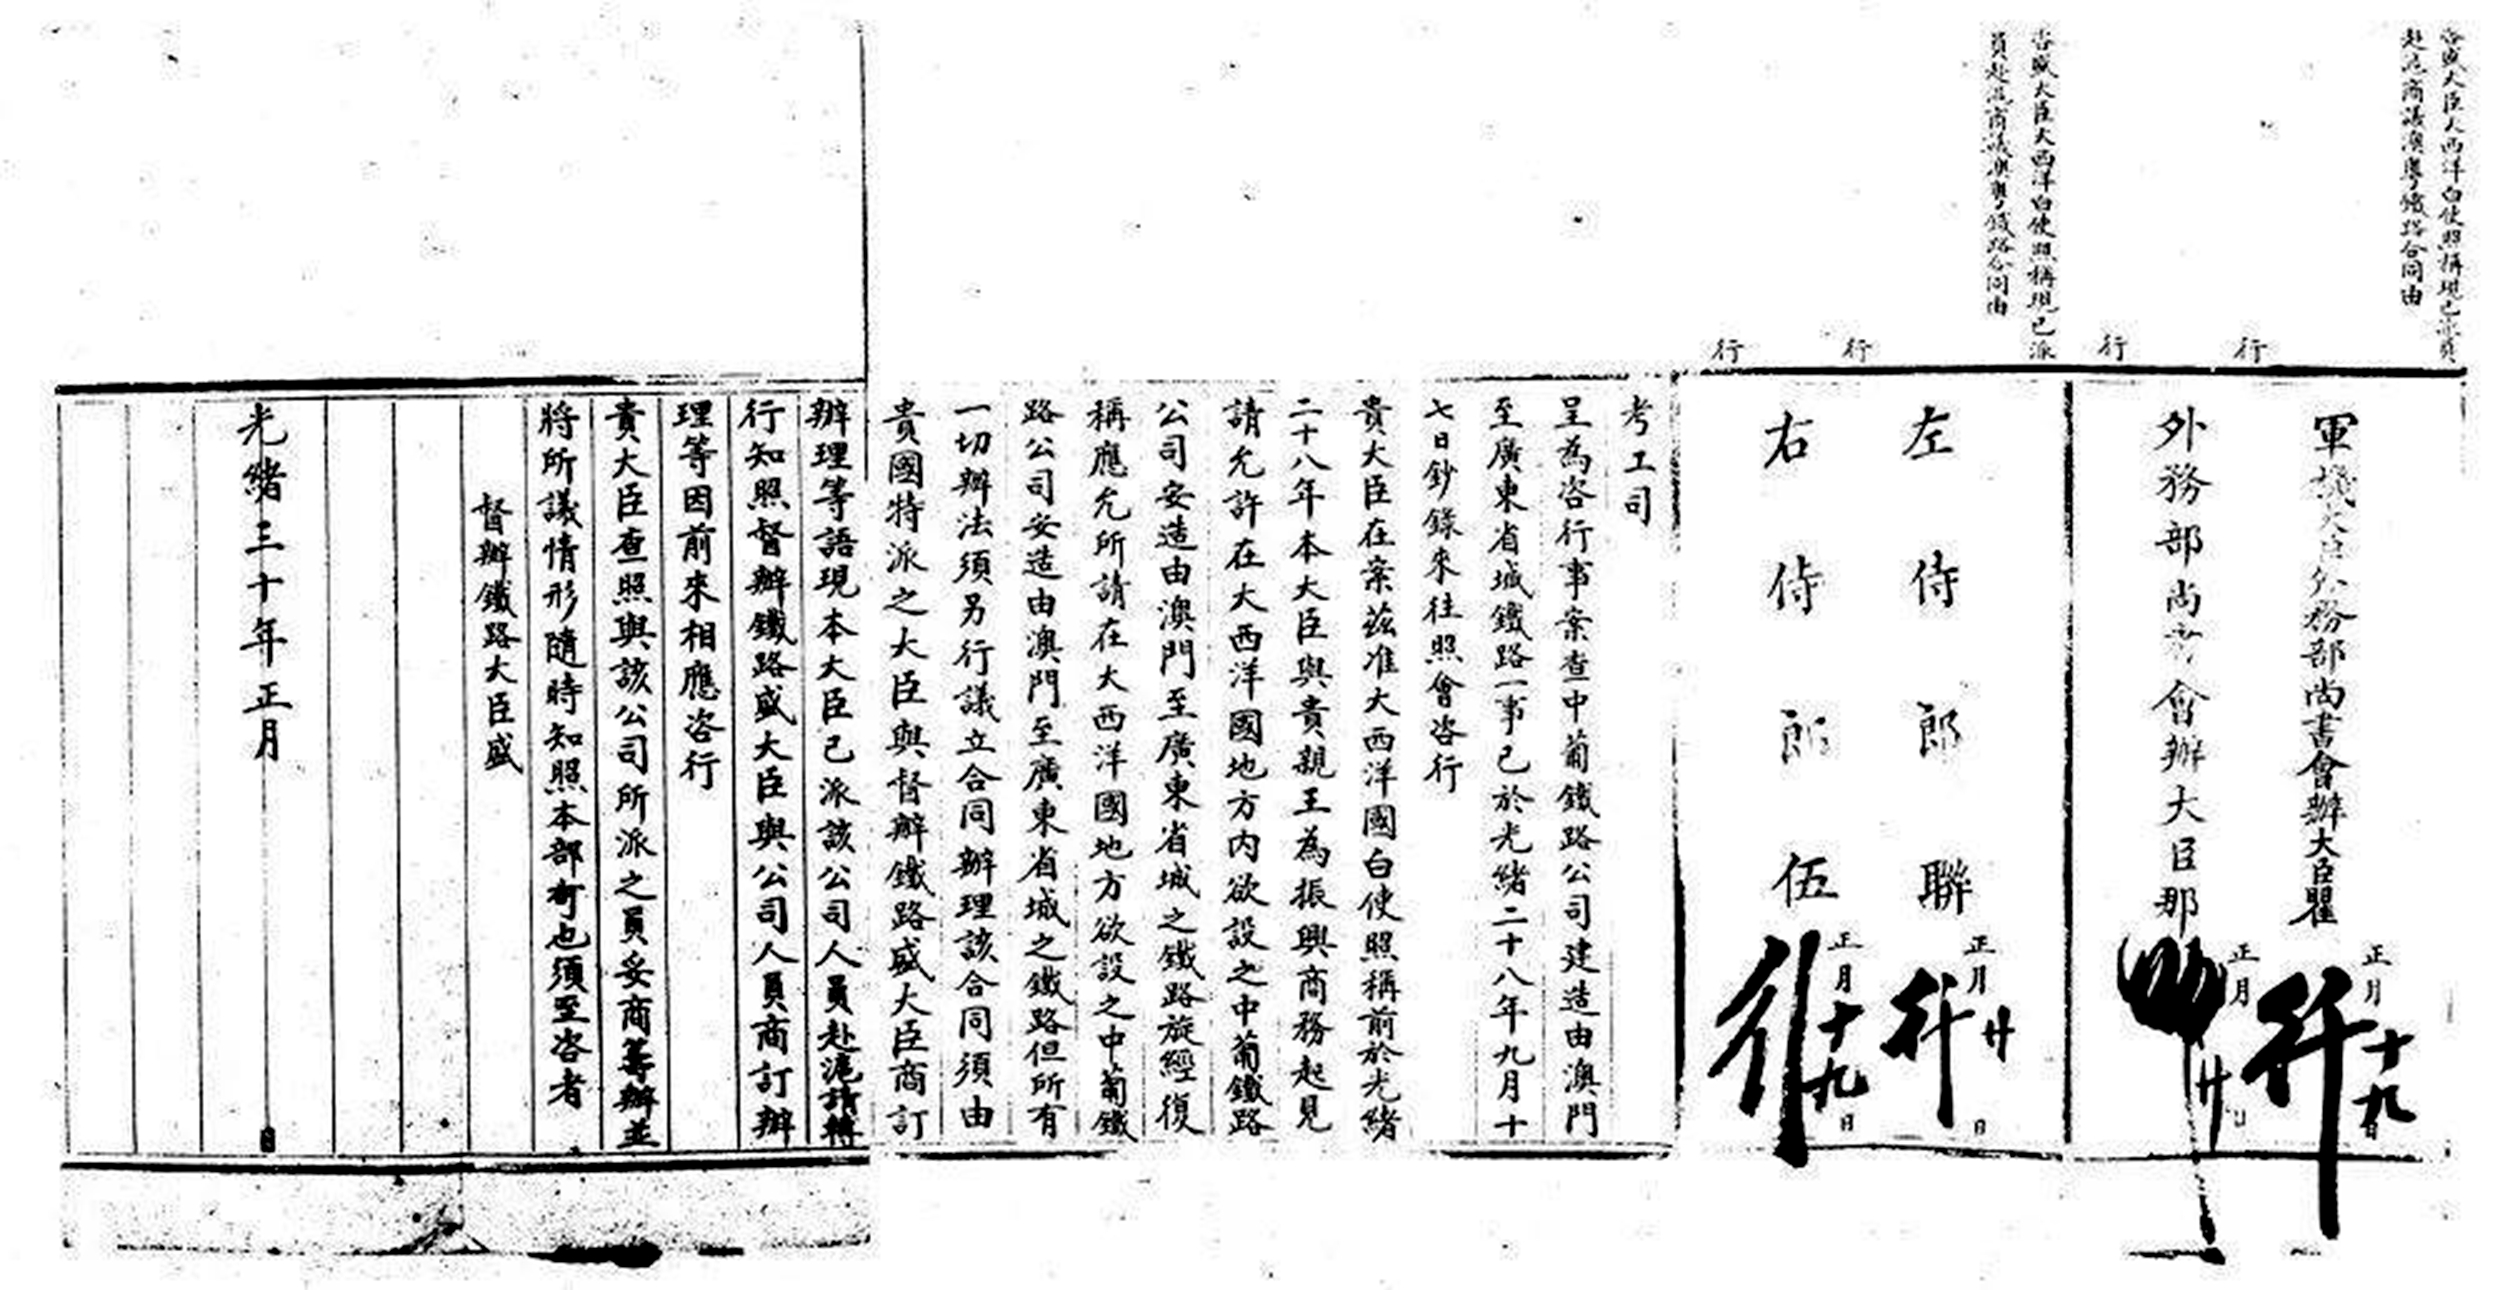 咨盛大臣大西洋白使照稱現已派員
赴滬商議澳粵鐵路合同由
行
行
軍機大臣外務部尚書會辦大臣瞿
正月十九日
行
外務部尚書會辦大臣那
正月廿日
咨盛大臣大西洋白使照稱現已派
員赴滬商議澳粵鐵路合同由
行
行
左侍郎聯
正月廿日
行
右侍郎伍
正月十九日
行
考工司
呈為咨行事案查中葡鐵路公司建造由澳門
至廣東省城鐵路一事已於光緒二十八年九月十
七日鈔錄來往照會咨行
貴大臣在案茲准大西洋國白使照稱前於光緒
二十八年本大臣與貴親王為振興商務起見
請允許在大西洋國地方內欲設之中葡鐵路
公司安造由澳門至廣東省城之鐵路旋經復
稱應允所請在大西洋國地方欲設之中葡鐵
路公司安造由澳門至廣東省城之鐵路但所有
一切辦法須另行議立合同辦理該合同須由
貴國特派之大臣與督辦鐵路盛大臣商訂
辦理等語現本大臣已派該公司人員赴滬請轉
行知照督辦鐵路盛大臣與公司人員商訂辦
理等因前來相應咨行
貴大臣查照與該公司所派之員妥商籌辦並
將所議情形隨時知照本部可也須至咨者
督辦鐵路大臣盛
光緒三十年正月 日